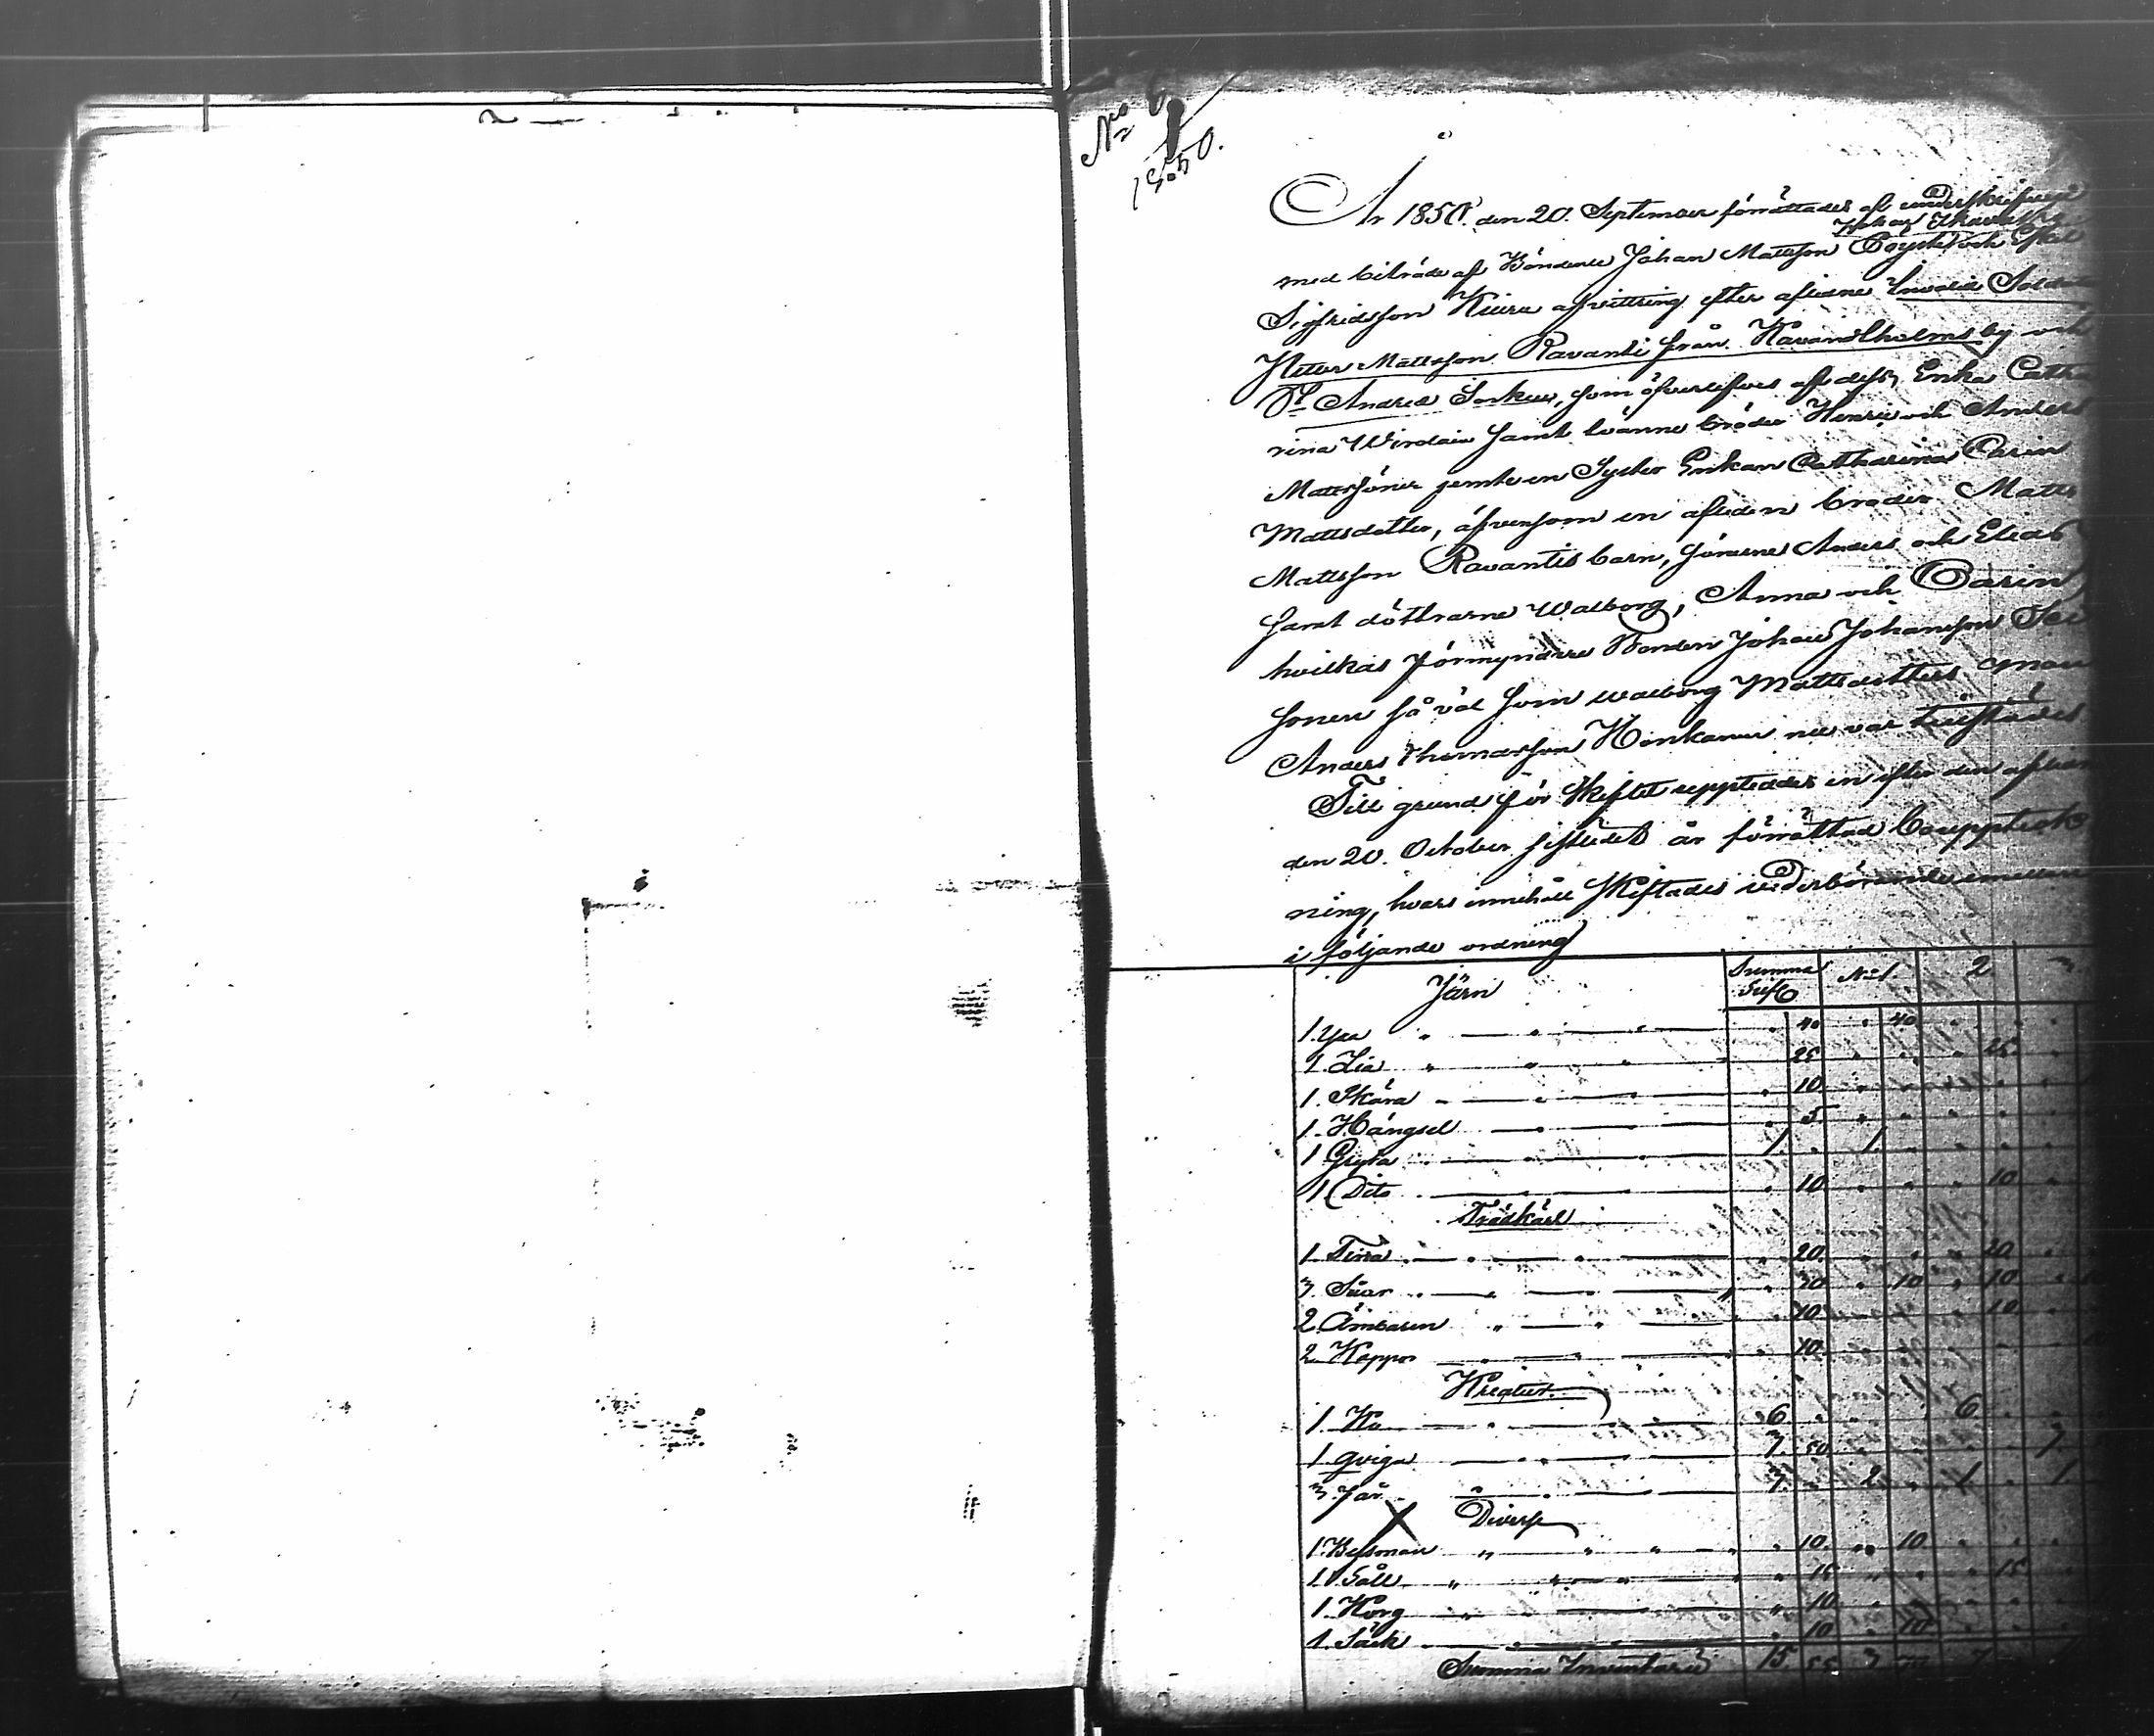 No 6
1850.
År 1850. den 20. September förrättades af undertecknad
med biträde af Bönderne Johan Mattsson Pöysti och Eskil
Sigfridsson Kiuru afvittring efter aflidne Invalid Soldaten
Petter Mattsson Ravanti från Kavandholms by och
St Andreæ Socken, som öfverlefves af dess Enka Catha
rina Wirolain samt tvänne bröder Henric och Anders
Mattssöner jemte en Syster Enkan Catharina Carin
Mattsdotter, äfvensom en afleden broder Matts
Mattsson Ravantis barn, sönerne Anders och Elias
samt döttrarne Walborg, Anna och Carin
hvilkas förmyndare Bonden Johan Johansson
sonen så väl som Walborg Mattsdotters man
Anders Thomasson Honkanen nu var tillstädes
Till grund för skiftet upplades en efter den aflidne
den 20. October sistledet år förrättad bouppteck
ning, hvars innehåll skiftades vederbörande emellan
i följande ordning
Järn Summa Silf No 1. 2 3
1. Yxa 40 40
1 Lia 25 25
1. Skära 10
1. Hängsel 5
1 Gryta 1. 1.
1 Dito 10 10
Trädkäril
1. Tina 20 20
3. Såar 30 10 10
2 Ämbaren 10 10
2. Kappor 10
Kreatur
1. Ko 6 6
1 Qviga 3. 50 3
3 Får 3 2 1 1
Diverse
1 Besman 10 10
1. Såll 15 15
1. Korg 10
1. Säck 10 10
Summa Inventarii 15 55 3